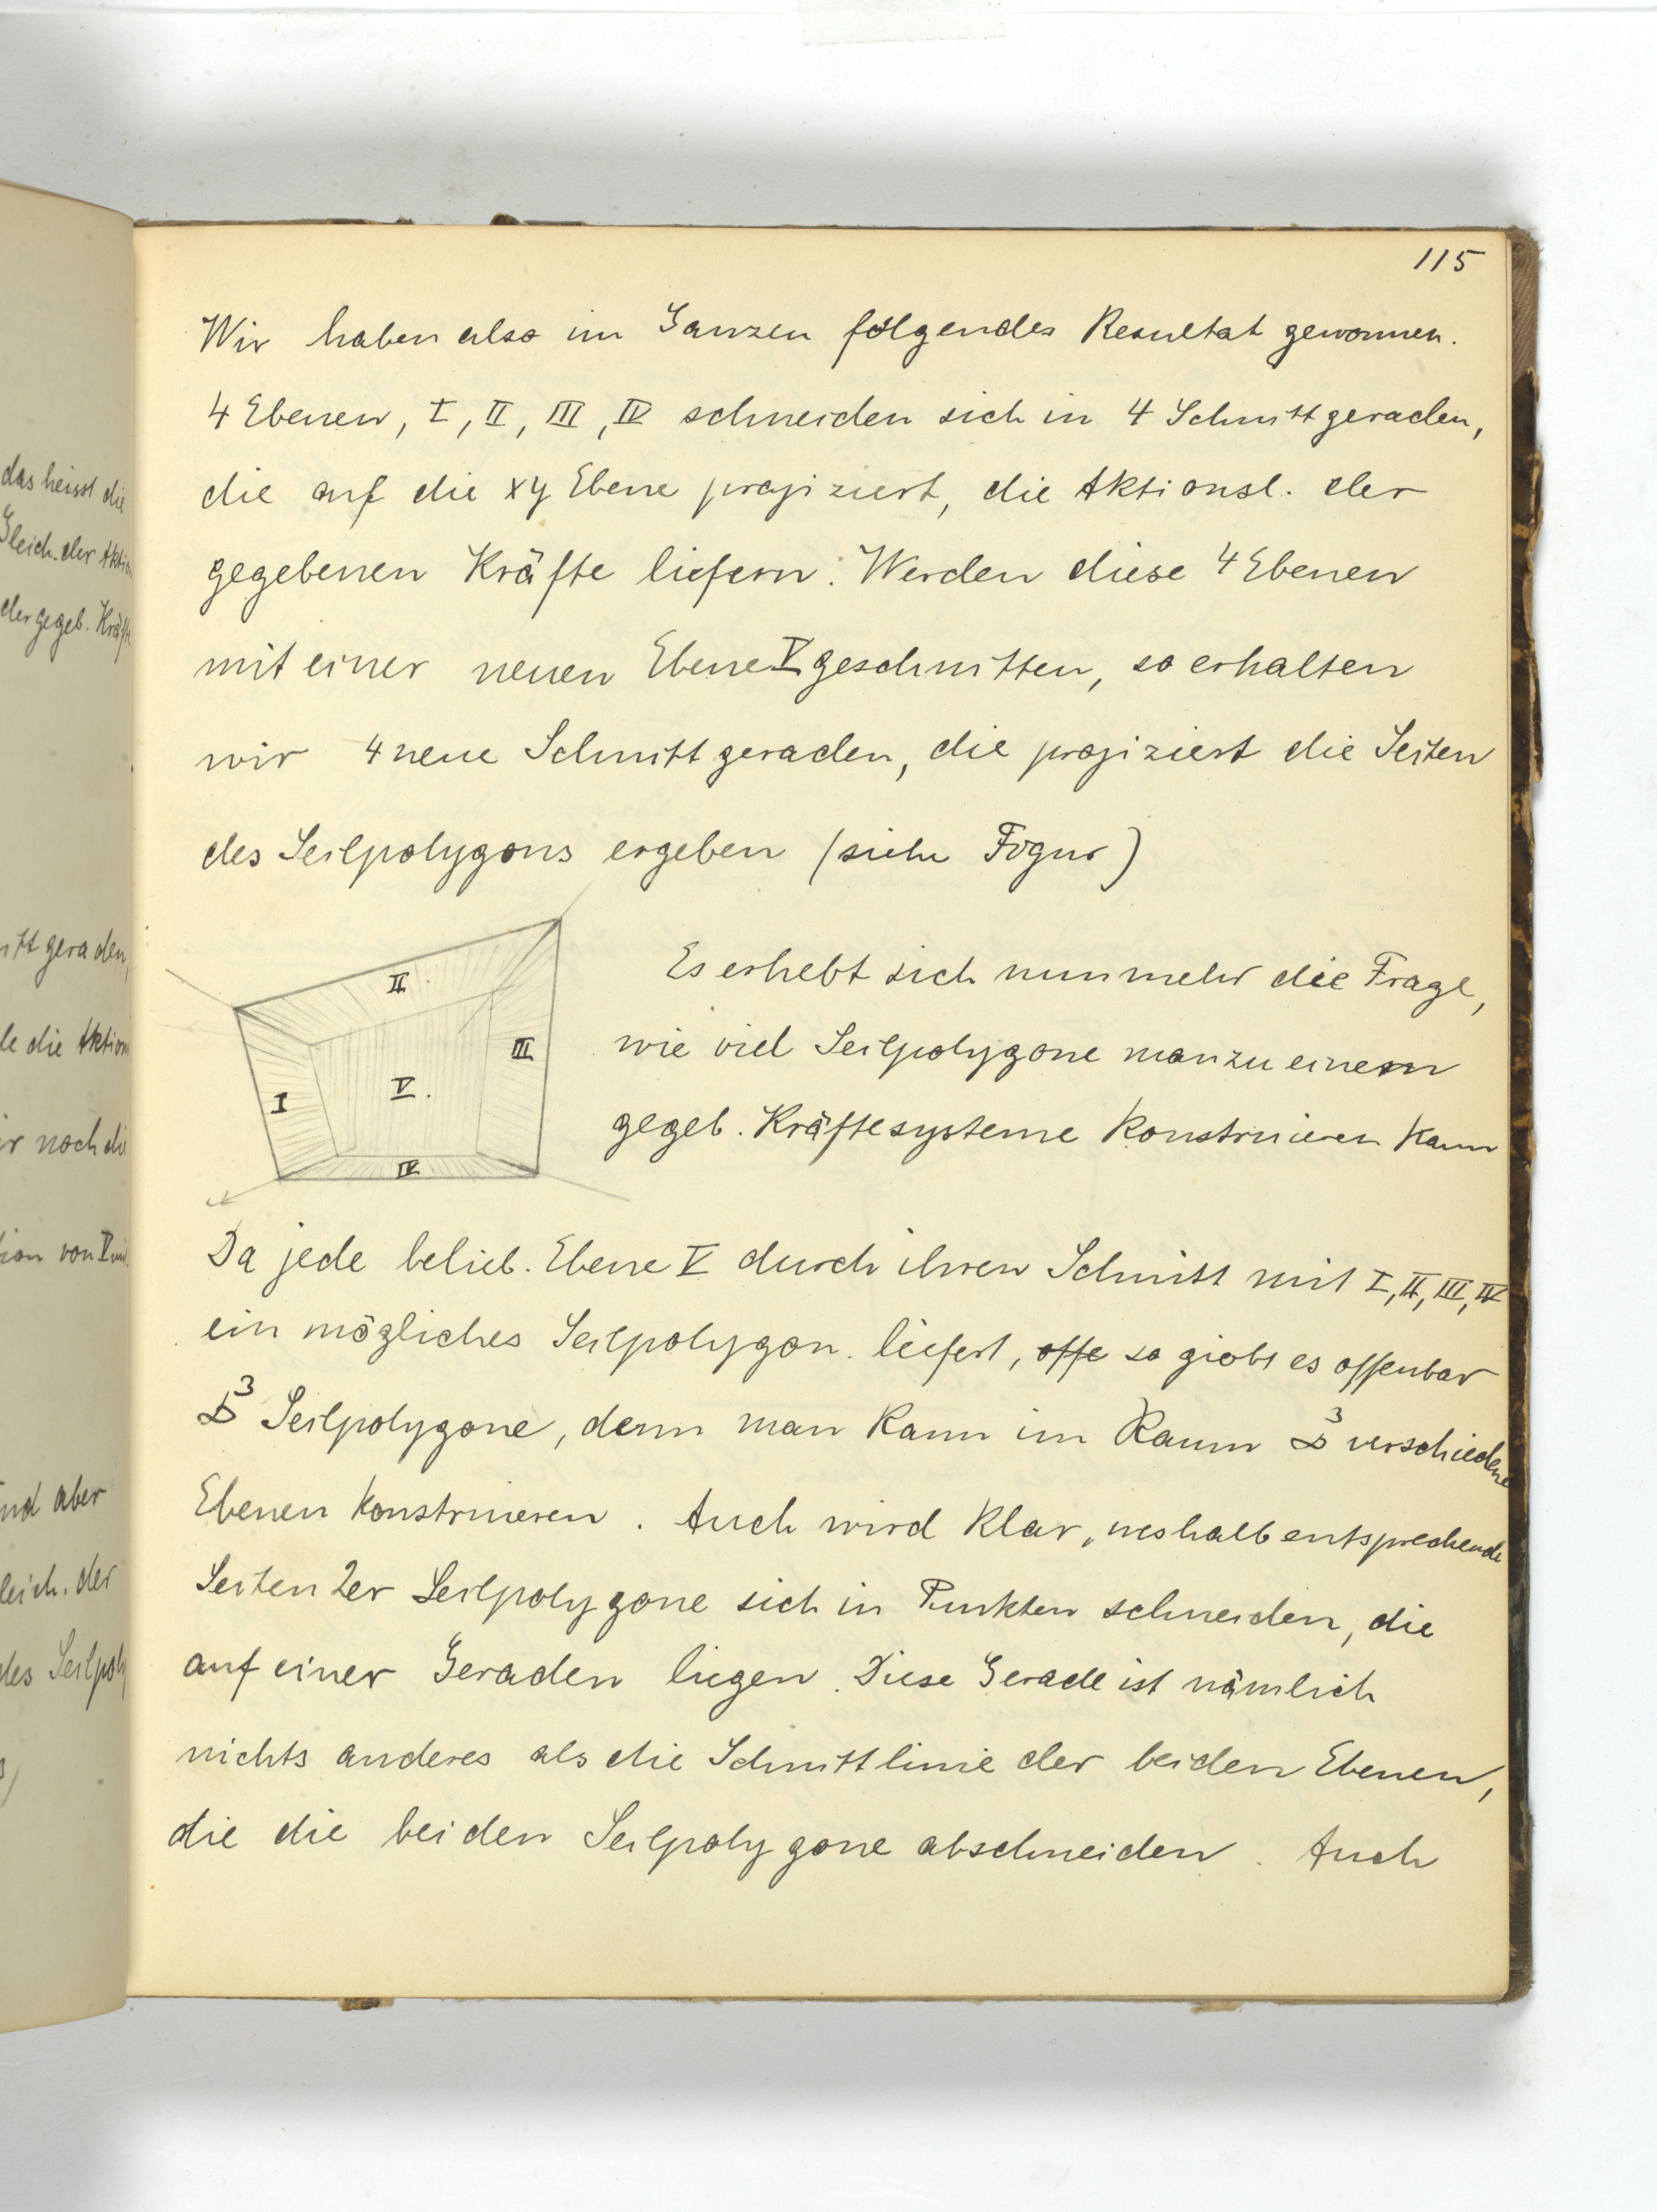 115
Wir haben also im Ganzen folgendes Resultat gewonnen.
4 Ebenen, I, II, III, IV schneiden sich in 4 Schnittgeraden,
die auf die xy Ebene projiziert, die Aktionsl. der
gegebenen Kräfte liefern. Werden diese 4 Ebenen
mit einer neuen Ebene V geschnitten, so erhalten
wir 4 neue Schnittgeraden, die projiziert die Seiten
des Seilpolygons ergeben (siehe Figur)
II
III
I
V.
IV
Es erhebt sich nunmehr die Frage,
wie viel Seilpolygone man zu einem
gegeb. Kräftesysteme konstruieren kann
Da jede belieb. Ebene V durch ihren Schnitt mit I, II, III, IV
ein mögliches Seilpolygon liefert, offe so giebt es offenbar
∞³ Seilpolygone, denn man kann im Raum ∞³ verschiedene
Ebenen konstruieren. Auch wird klar, weshalb entsprechende
Seiten 2er Seilpolygone sich in Punkten schneiden, die
auf einer Geraden liegen. Diese Gerade ist nämlich
nichts anderes als die Schnittlinie der beiden Ebenen,
die die beiden Seilpolygone abschneiden. Auch
das heisst die
Gleich. der Aktion
der gegeb. Kräfte
geraden,
die Aktion
noch die
von V
und aber
der
des Seilpoly